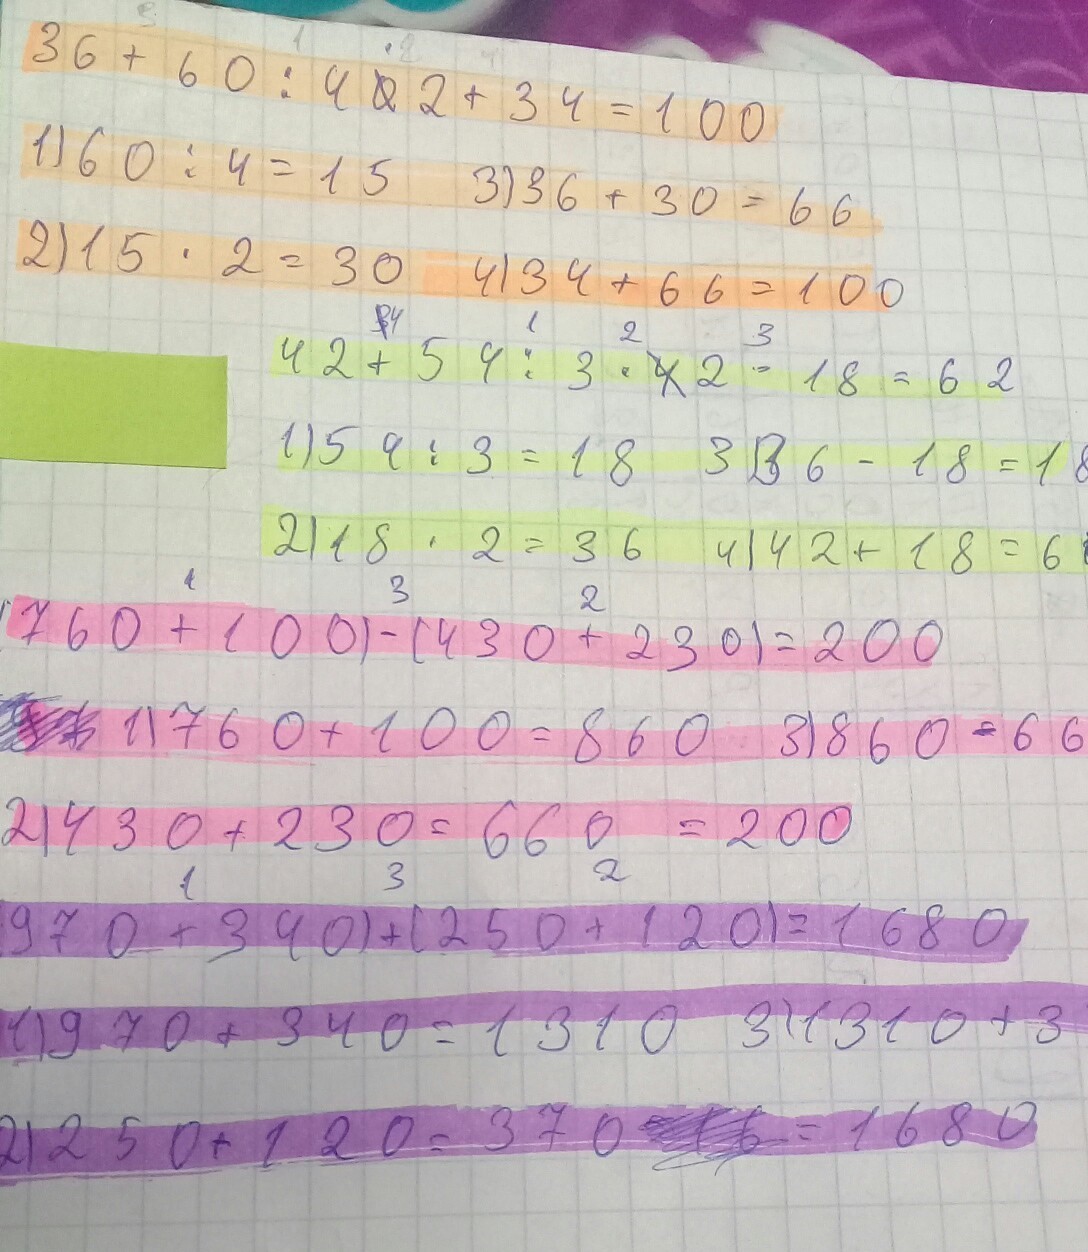 3 1 2 4
36 + 60 : 4 · 2 + 34 = 100
1) 60 : 4 = 15 3) 36 + 30 = 66
2) 15 · 2 = 30 4) 34 + 66 = 100
4 1 2 3
42 + 54 : 3 · 2 - 18 = 62
1) 54 : 3 = 18 3) 36 - 18 = 18
2) 18 · 2 = 36 4) 42 + 18 = 6
1 3 2
(760 + 100) - (430 + 230) = 200
1) 760 + 100 = 860 3) 860 - 66
2) 430 + 230 = 660 = 200
1 3 2
970 + 340) + (250 + 120) = 1680
1) 970 + 340 = 1310 3) 1310 + 3
2) 250 + 120 = 370 = 1680